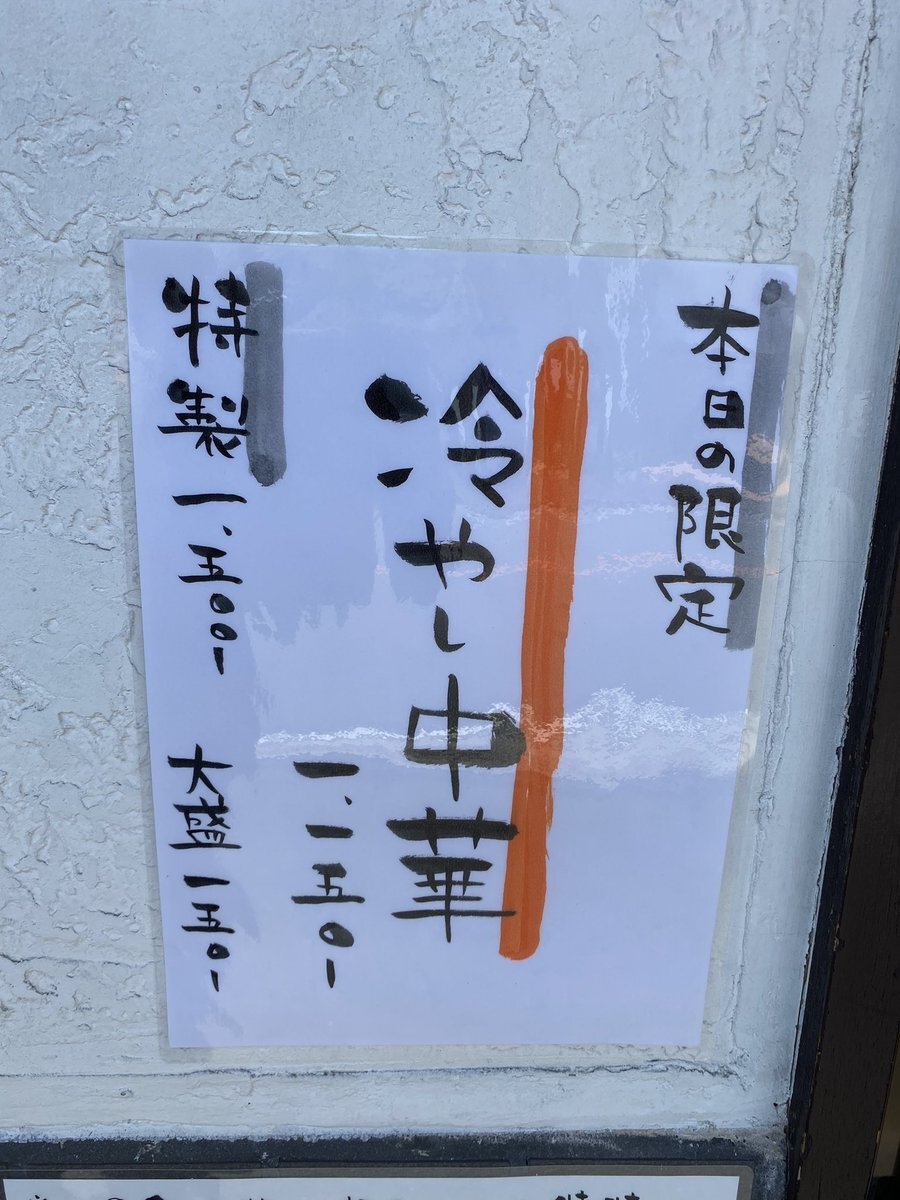 本日の限定
冷やし中華
一、一五〇ー
特製一、五〇〇ー
大盛一五〇ー